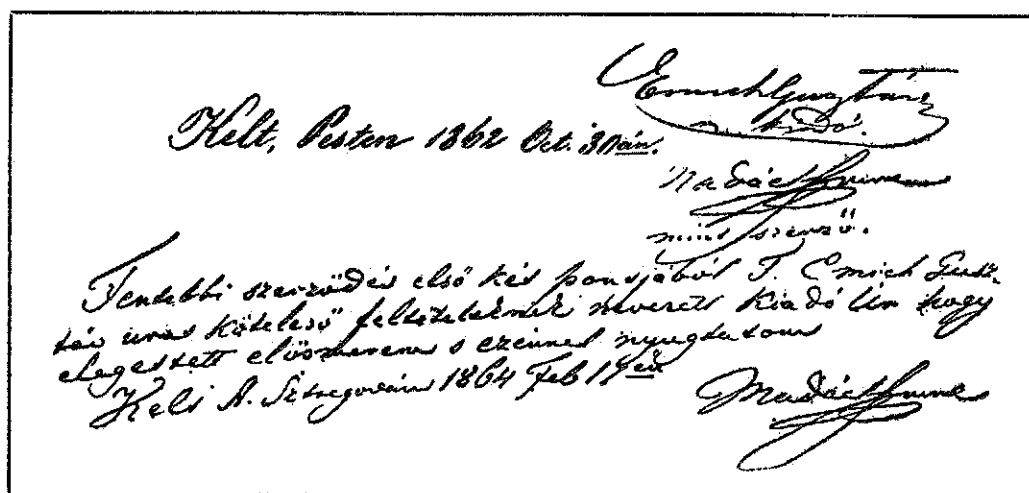 Emich Gusztáv
m. kiadó.
Kelt, Pesten 1862 Oct. 30án.
Madách Imre
mint szerző.
Fentebbi szerződés első két pontjából T. Emich Gusz-
táv úrat kötelező feltételeknek nevezett Kiadó úr hogy
eleget tett elösmerem s ezennel nyugtatom
Kelt A. Sztregován 1864 Feb 17én
Madách Imre